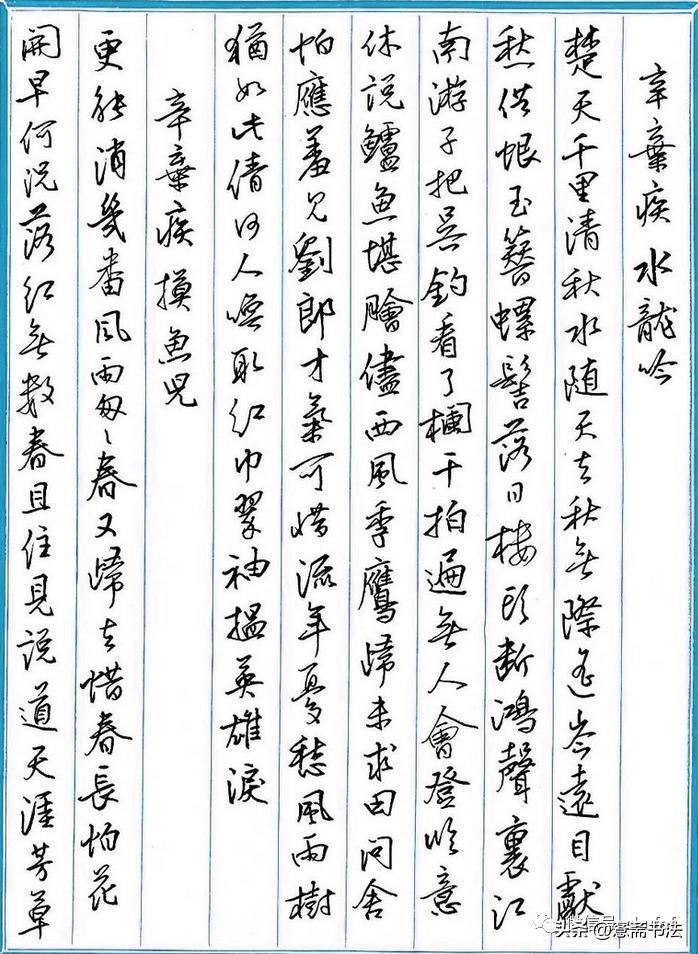 辛棄疾水龍吟
楚天千里清秋水随天去秋無際遙岑遠目獻
愁供恨玉簪螺髻落日樓頭斷鴻聲裏江
南游子把吳鈎看了欄干拍遍無人會登臨意
休說鱸魚堪膾儘西風季鷹歸未求田問舍
怕應羞見劉郎才氣可惜流年憂愁風雨樹
猶如此倩何人喚取紅巾翠袖搵英雄淚
辛棄疾摸魚兒
更能消幾番風雨匆々春又歸去惜春長怕花
開早何況落紅無數春且住見說道天涯芳草
头条@斋书法